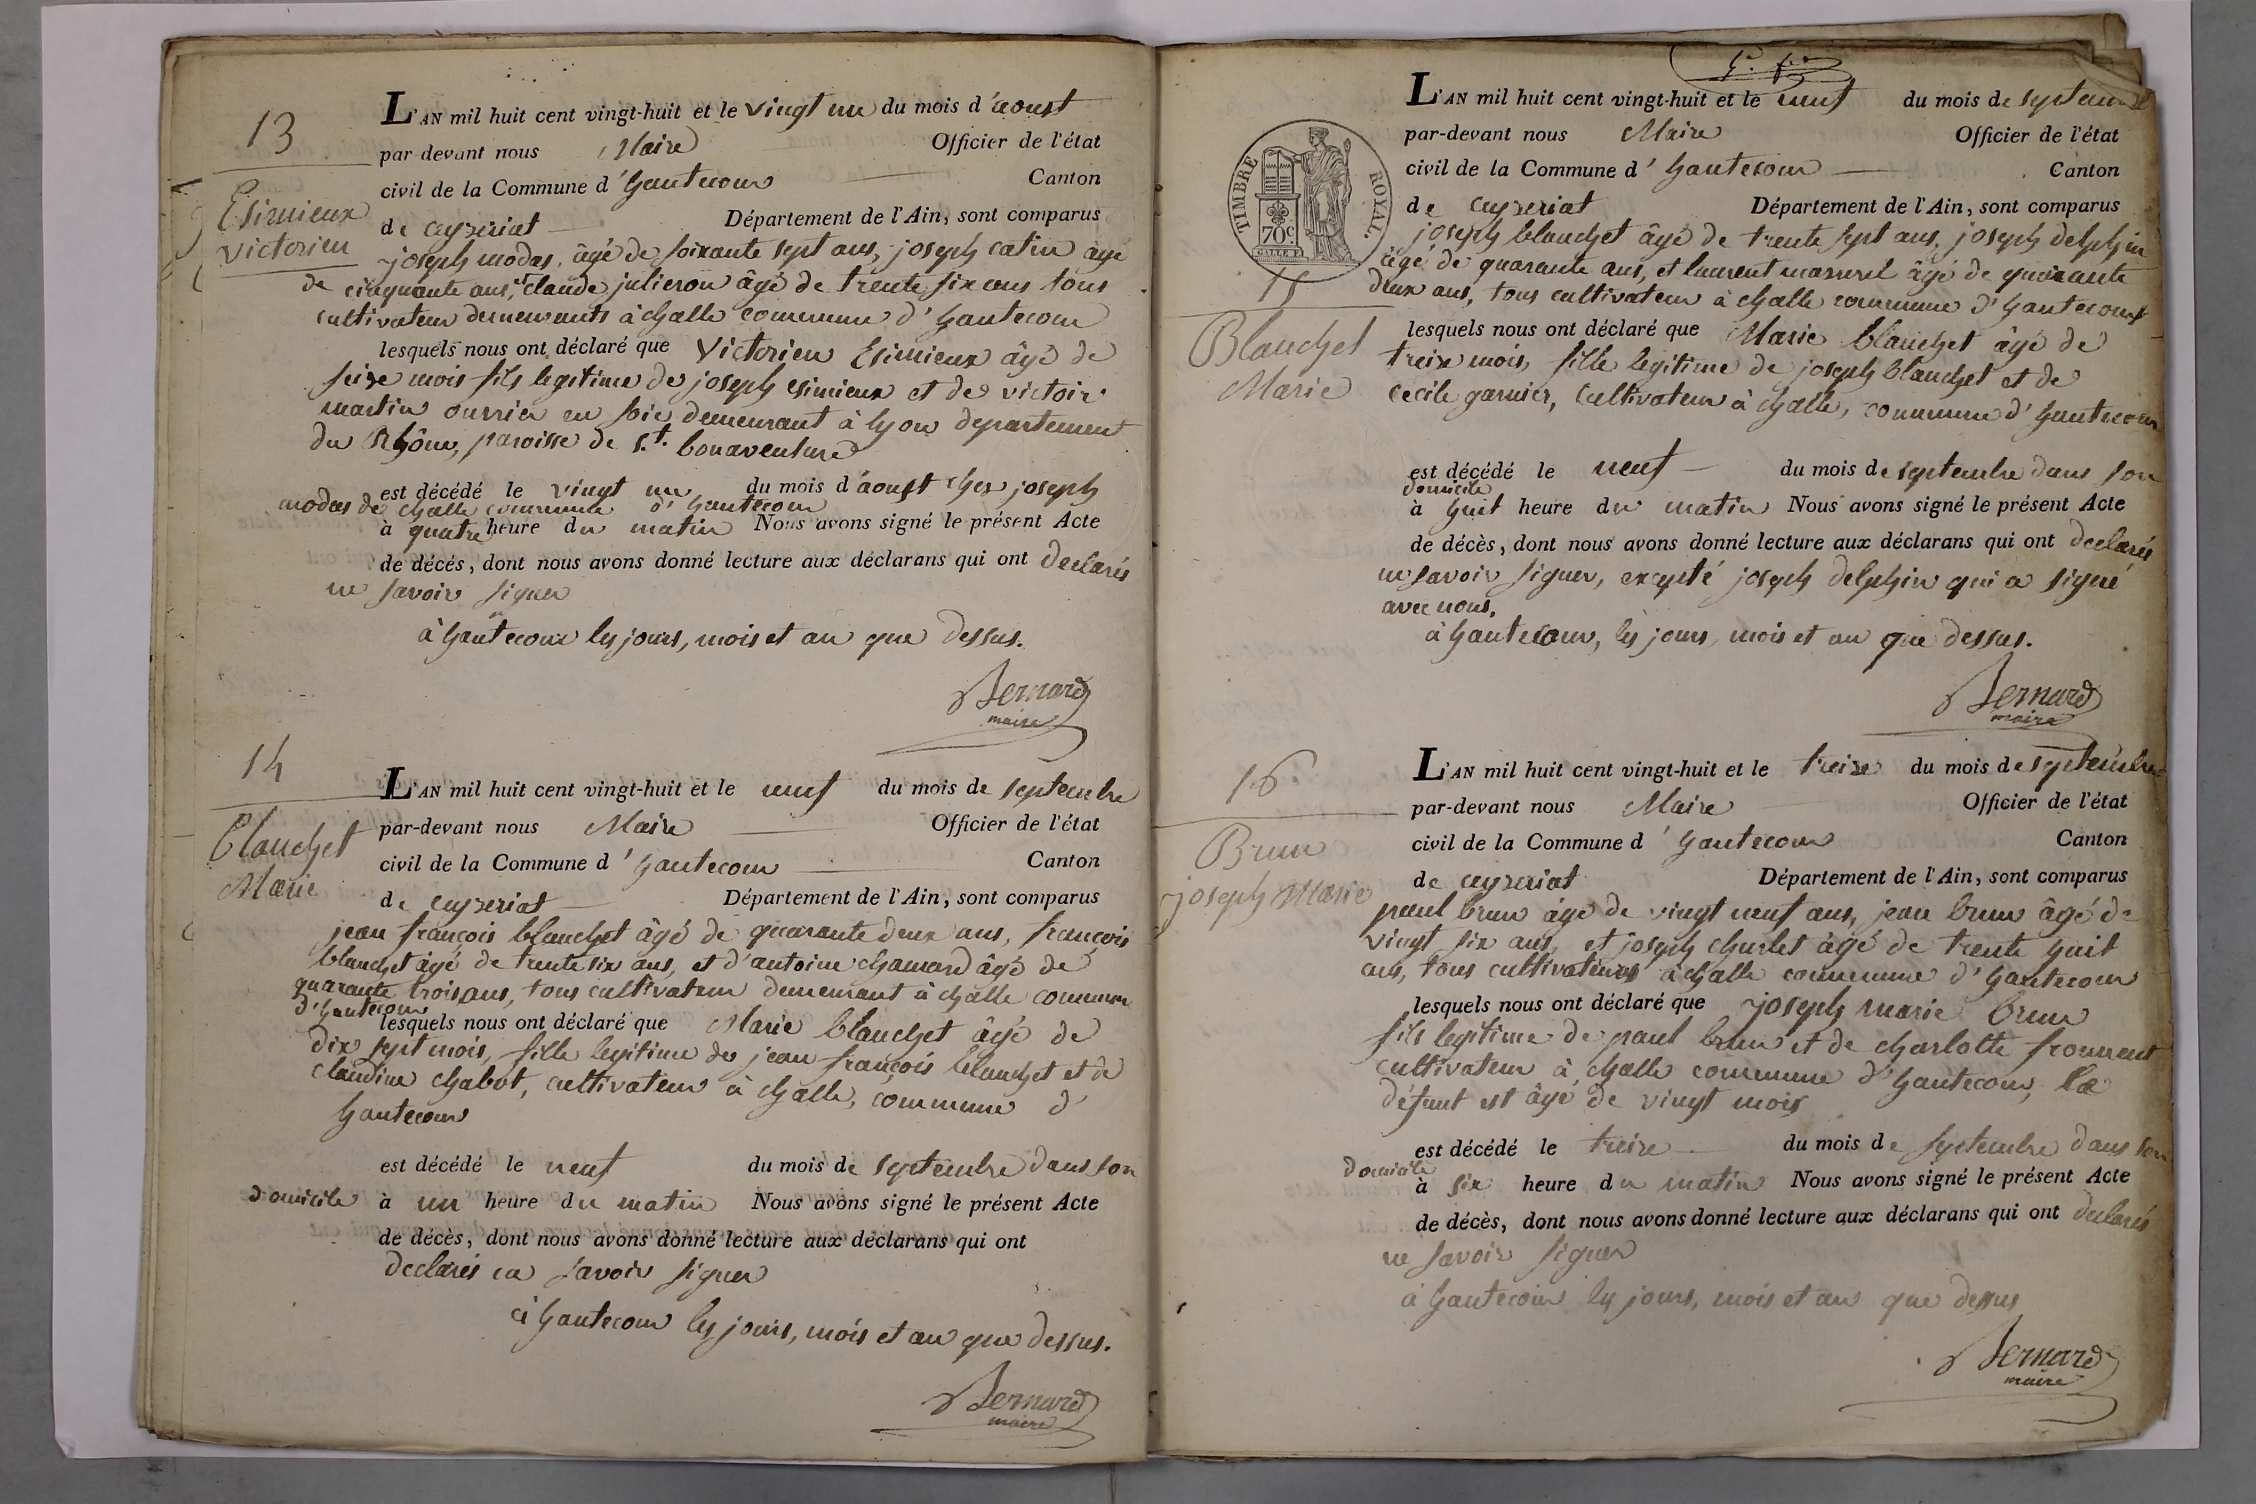 13
Esimieux
victorien
L'AN mil huit cent vingt-huit et le vingt un du mois d'aoust
par-devant nous Maire Officier de l'état
civil de la Commune d'hautecour Canton
de ceyzeriat Département de l'Ain, sont comparus
joseph modas, âgé de soixante sept ans, joseph catin âgé
de cinquante ans, claude julieron âgé de trente six ans tous
cultivateur demeurants à challe commune d'hautecour
lesquels nous ont déclaré que Victorien Esimieux âgé de
seize mois fils legitime de joseph esimieux et de victoire
martin ouvrier en soie demeurant à lyon departement
du Rhône, paroisse de s.t bonaventure
est décédé le vingt un du mois d'aoust chez joseph
modas de challe commune d'hautecour
à quatre heure du matin Nous avons signé le présent Acte
de décés, dont nous avons donné lecture aux déclarans qui ont declarés
ne savoir signer
à hautecour les jours, mois et an que dessus.
Bernard
maire
14
Blanchet
Marie
L'AN mil huit cent vingt-huit et le neuf du mois de septembre
par-devant nous Maire Officier de l'état
civil de la Commune d'hautecour Canton
de ceyzeriat Département de l'Ain, sont comparus
jean françois blanchet âgé de quarante deux ans, françois
blanchet âgé de trente six ans, et d'antoine chanard âgé de
quarante trois ans, tous cultivateur demeurant à challe commune
d'hautecour
lesquels nous ont déclaré que Marie blanchet âgé de
dix sept mois, fille legitime de jean françois blanchet et de
claudine chabot, cultivateur à challe, commune d'
hautecour
est décédé le neuf du mois de septembre dans son
domicile à un heure du matin Nous avons signé le présent Acte
de décès, dont nous avons donné lecture aux déclarans qui ont
declarés ne savoir signer
à hautecour les jours, mois et an que dessus.
Bernard
maire
TIMBRE ROYAL.
70c
15
Blanchet
Marie
L'AN mil huit cent vingt-huit et le neuf du mois de septembre
par-devant nous Maire Officier de l'état
civil de la Commune d'hautecour Canton
de ceyzeriat Département de l'Ain, sont comparus
joseph blanchet âgé de trente sept ans, joseph delphin
âgé de quarante ans, et laurent âgé de quarante
deux ans, tous cultivateur à challe commune d'hautecourt
lesquels nous ont déclaré que Marie blanchet âgé de
treize mois, fille legitime de joseph blanchet et de
cecile garnier, cultivateur à challe, commune d'hautecour
est décédé le neuf du mois de septembre dans son
domicile
à huit heure du matin Nous avons signé le présent Acte
de décès, dont nous avons donné lecture aux déclarans qui ont declarés
ne savoir signer, excepté joseph delphin qui a signé
avec nous.
à hautecour, les jours, mois et an que dessus.
Bernard
maire
16
Brun
joseph Marie
L'AN mil huit cent vingt-huit et le treize du mois de septembre
par-devant nous Maire Officier de l'état
civil de la Commune d'hautecour Canton
de ceyzeriat Département de l'Ain, sont comparus
paul brun âgé de vingt neuf ans, jean brun âgé de
vingt six ans, et joseph charlet âgé de trente huit
ans, tous cultivateurs à challe commune d'hautecour
lesquels nous ont déclaré que joseph marie brun
fils legitime de paul brun et de charlotte froment
cultivateur à challe commune d'hautecour, le
défunt est âgé de vingt mois
est décédé le treize du mois de septembre dans son
domicile
à six heure du matin Nous avons signé le présent Acte
de décès, dont nous avons donné lecture aux déclarans qui ont declarés
ne savoir signer
à hautecour les jours, mois et an que dessus
Bernard
maire